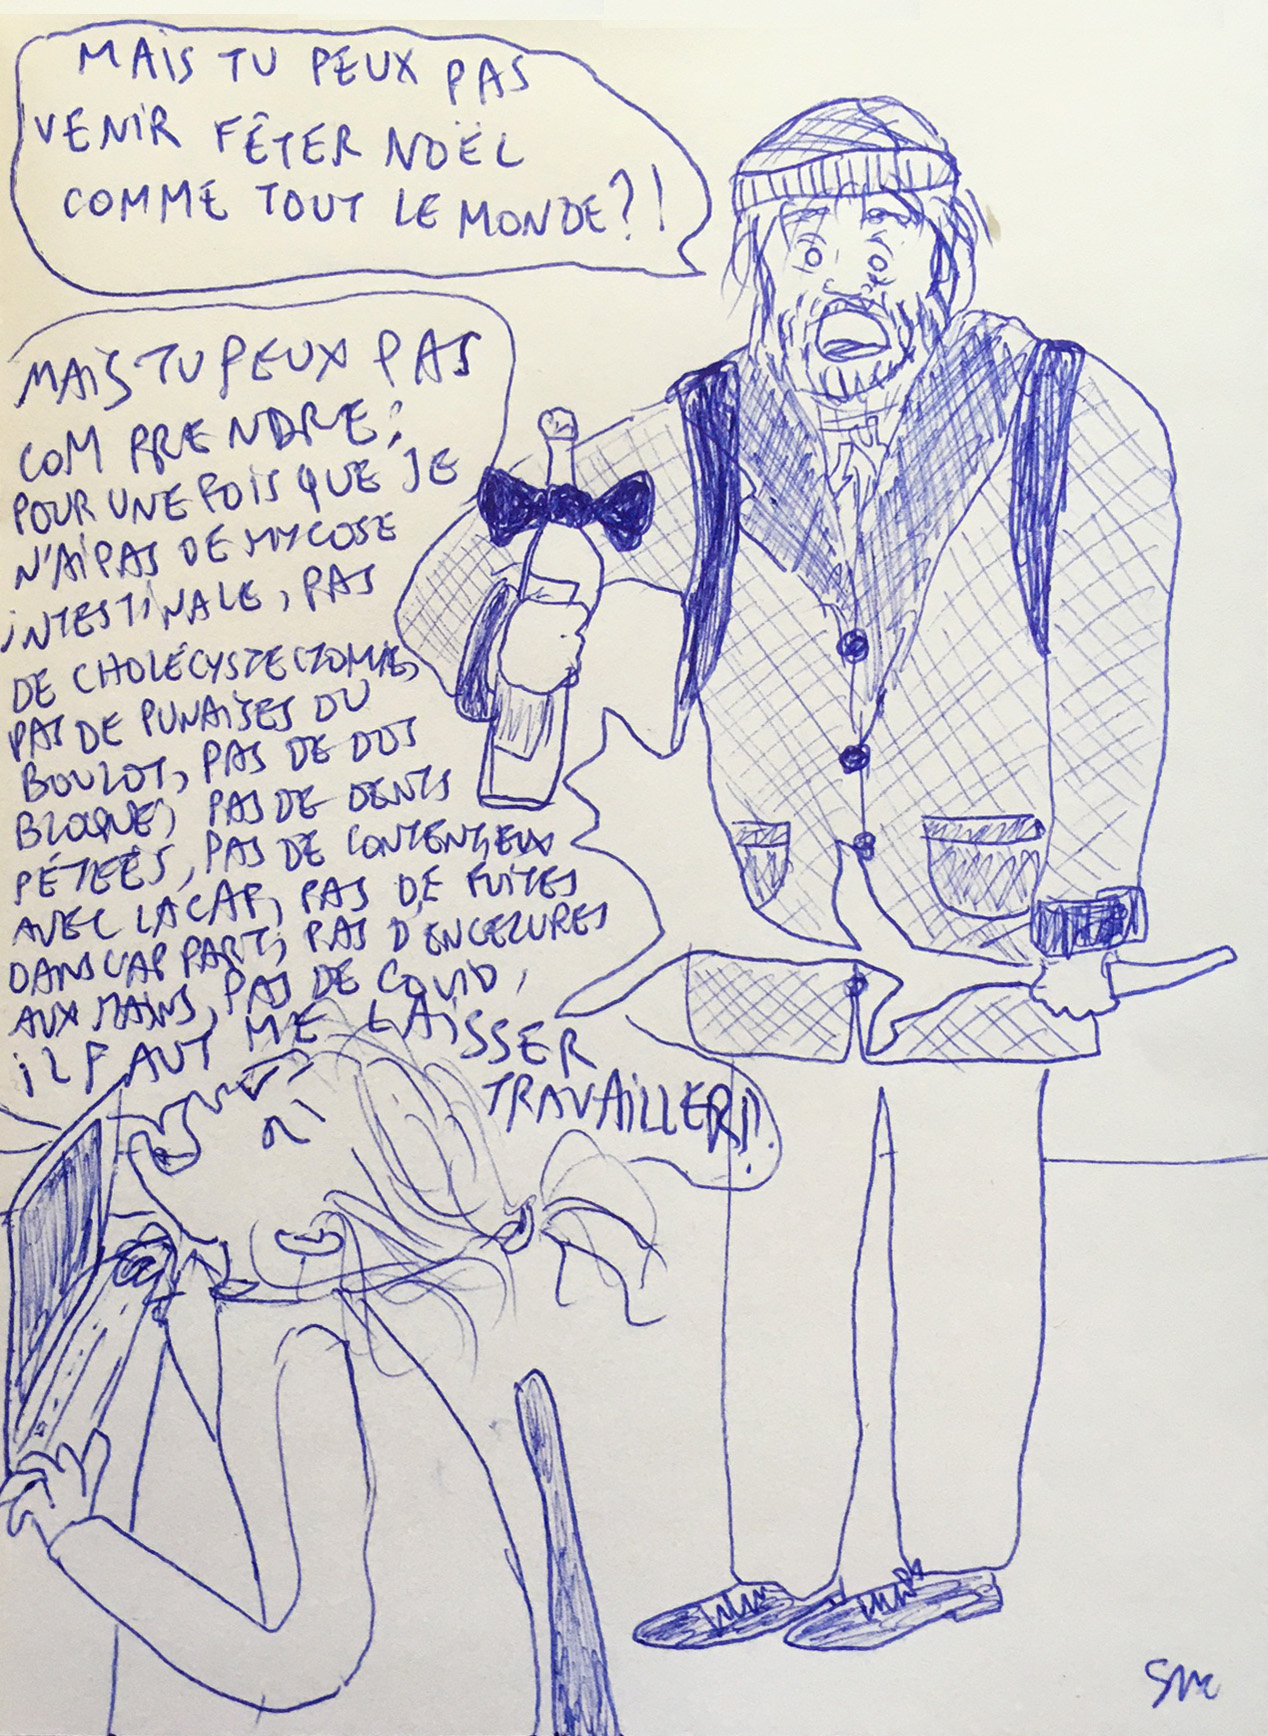 MAIS TU PEUX PAS
VENIR FÊTER NOËL
COMME TOUT LE MONDE?!
MAIS TU PEUX PAS
COMPRENDRE:
POUR UNE FOIS QUE JE
N'AI PAS DE MYCOSE
INTESTINALE, PAS
DE CHOLÉCYSTECTOMIE,
PAS DE PUNAISES DU
BOULOT, PAS DE DOS
BLOQUÉ, PAS DE DENTS
PÉTÉES, PAS DE CONTENTIEUX
AVEC LA CAF, PAS DE FUITES
DANS L'APPART, PAS D'ENGELURES
AUX MAINS, PAS DE COVID,
IL FAUT ME LAISSER
TRAVAILLER!!